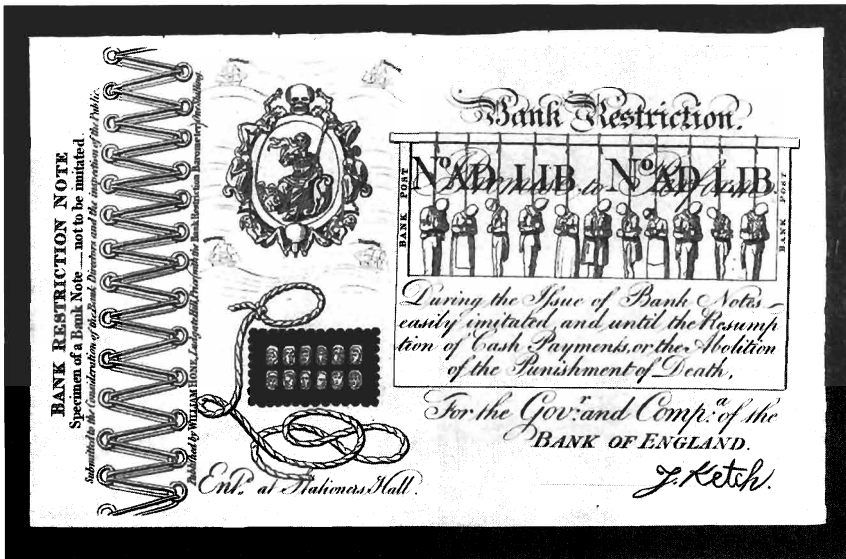 BANK RESTRICTION NOTE
Specimen of a Bank Note — not to be imitated.
Submitted to the Consideration of the Bank Directors and the inspection of the Public.
Published by WILLIAM HONE, Ludgate Hill,
Bank Restriction.
No. AD LIB. No. AD LIB
BANK POST
BANK POST
During the Issue of Bank Notes
easily imitated, and until the Resump
tion of Cash Payments, or the Abolition
of the Punishment of Death,
For the Govr. and Compa. of the
BANK OF ENGLAND.
J. Ketch.
Entd. at Stationers Hall.